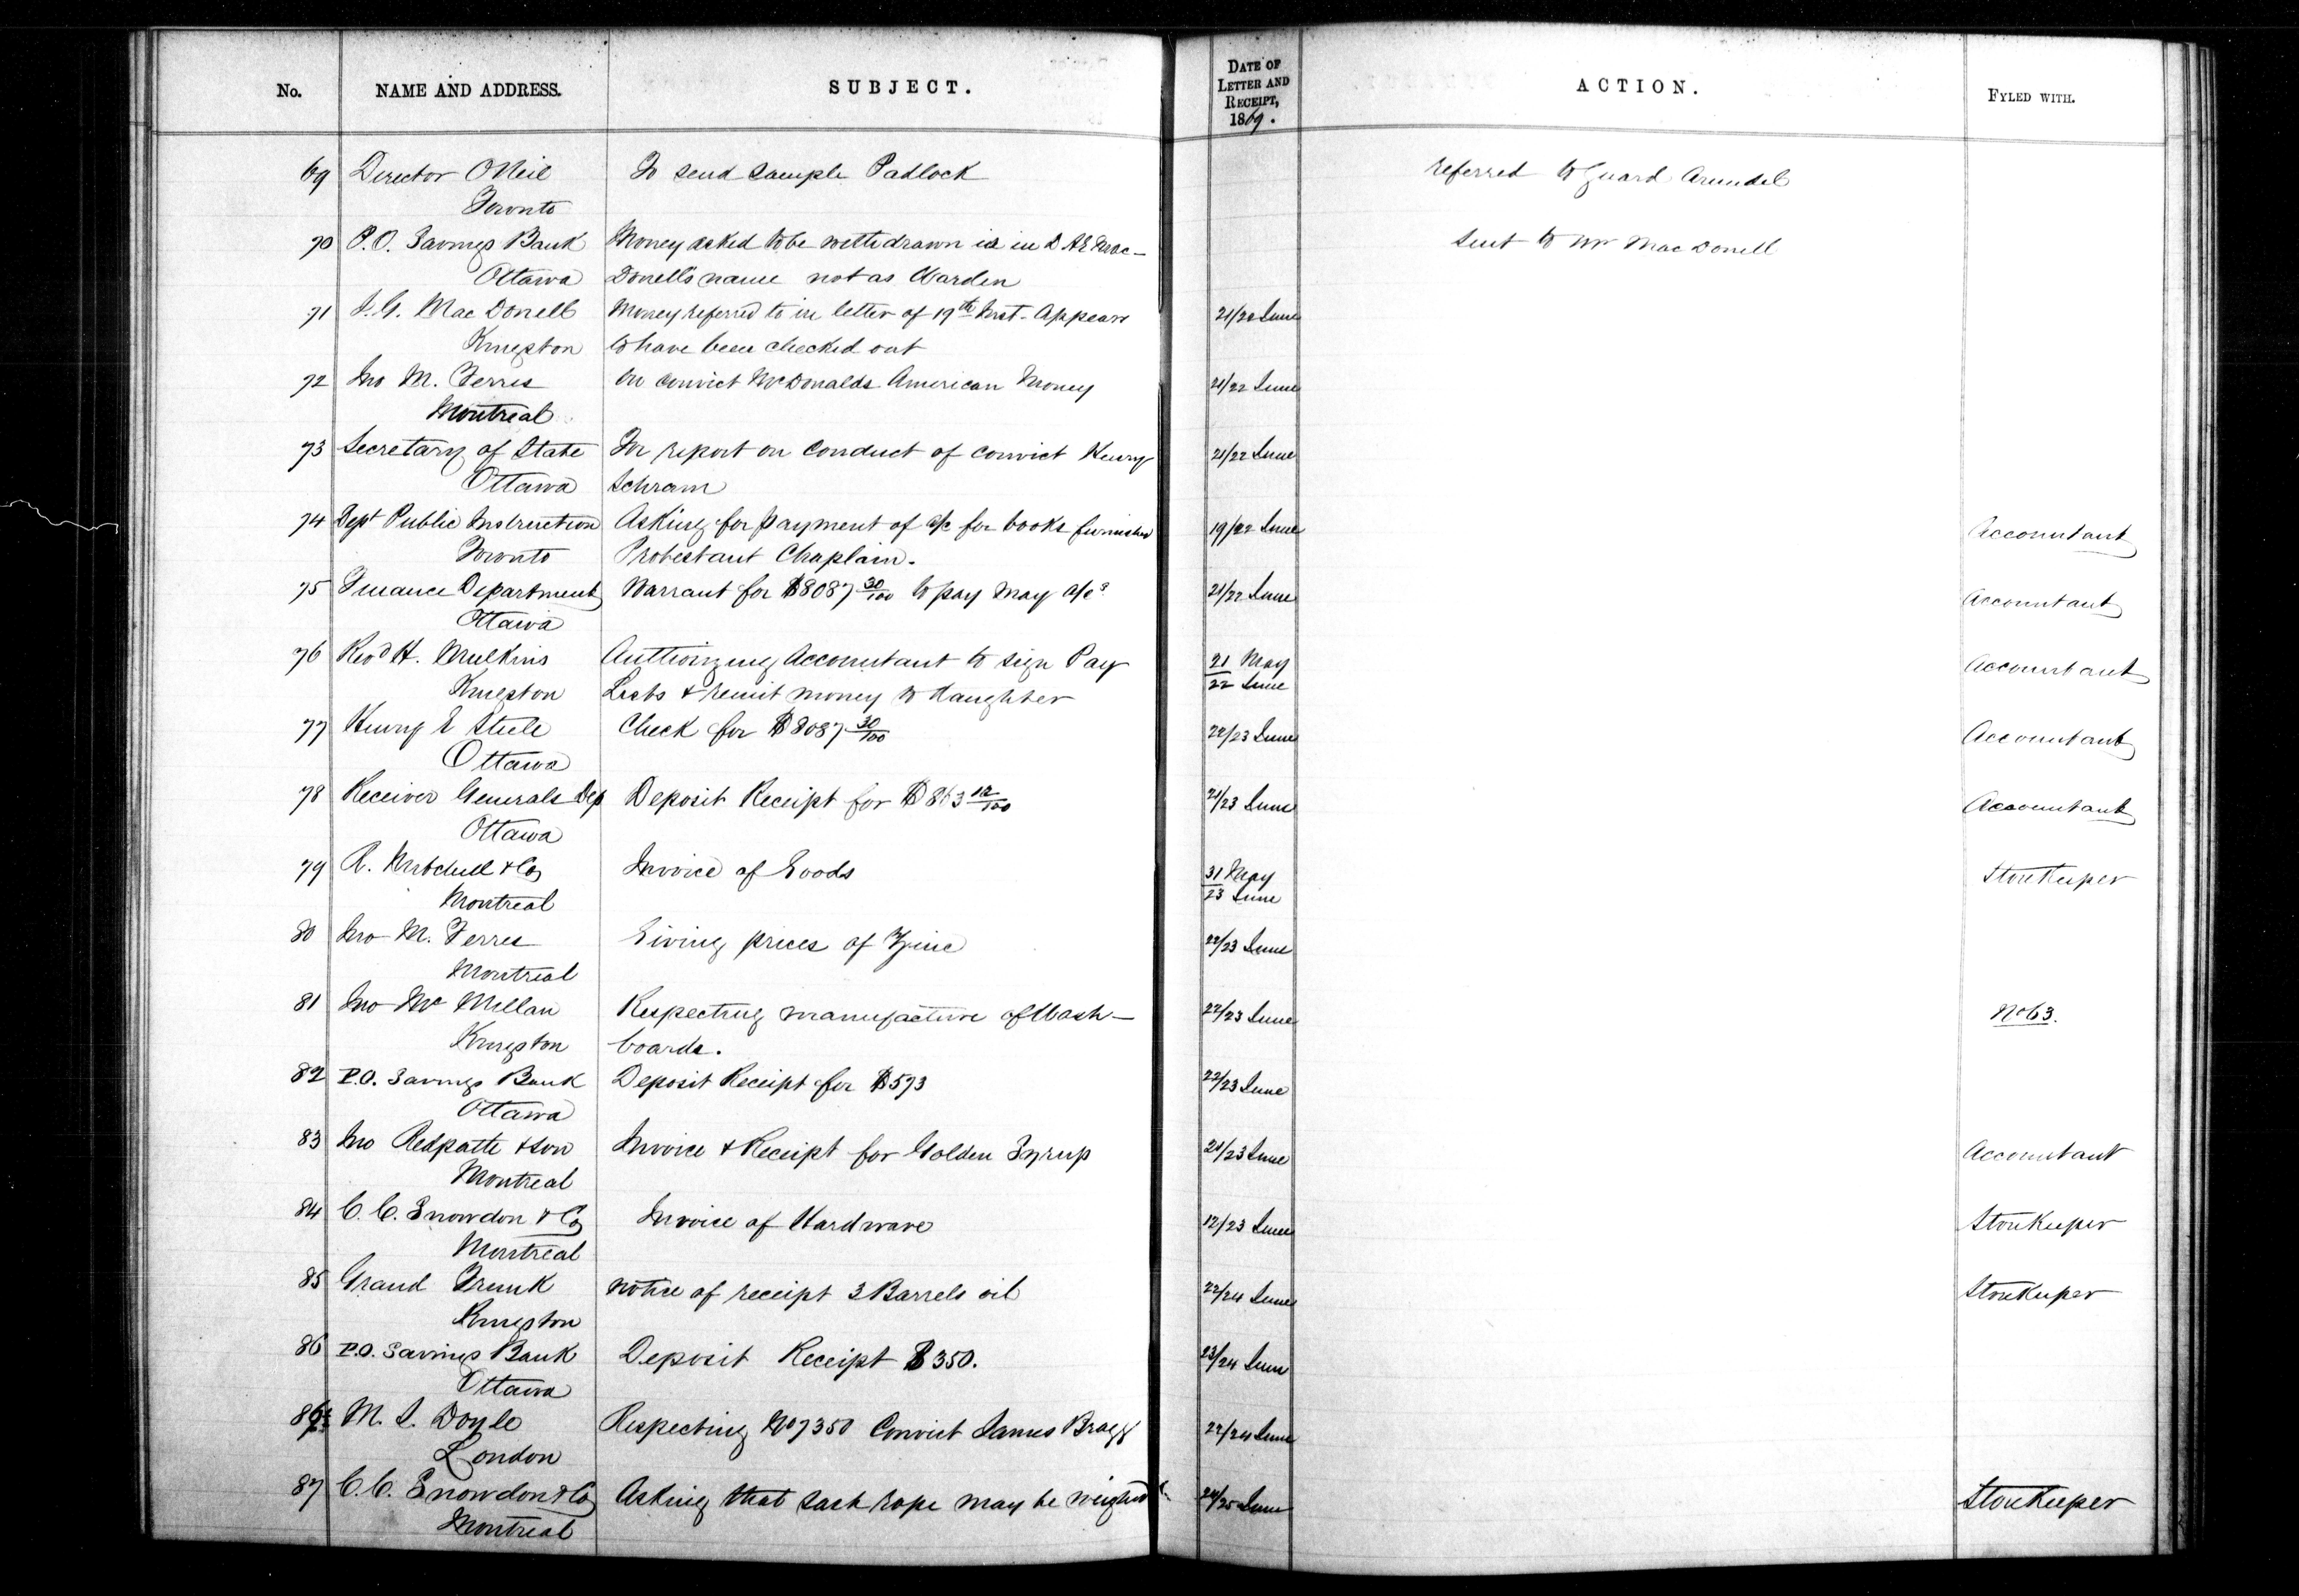 No. NAME AND ADDRESS. SUBJECT. DATE OF LETTER AND RECEIPT, 1869. ACTION. FYLED WITH.
69 Director ONeil To send sample Padlock referred to Guard Arundel
Toronto
70 P.O. Savings Bank Money asked to be withdrawn is in D Æ Mac- Sent to Mr MacDonell
Ottawa Donell's name not as Warden
71 J. G. MacDonell Money referred to in letter of 19th Inst. Appears 21/20 June
Kingston to have been checked out
72 Jno M. Ferres On convict McDonalds American Money 21/22 June
Montreal
73 Secretary of State For report on conduct of convict Henry 21/22 June
Ottawa Schram
74 Dept Public Instruction Asking for payment of a/c for books furnished 19/22 June Accountant
Toronto Protestant Chaplain.
75 Finance Department Warrant for $8087 30/100 to pay May a/cs 21/22 June Accountant
Ottawa
76 Revd H. Mulkins Authorizing Accountant to sign Pay 21 May Accountant
Kingston Lists & remit money to daughter 22 June
77 Henry E Steele Check for $8087 30/100 22/23 June Accountant
Ottawa
78 Receiver Generals Dep Deposit Receipt for $863 12/100 21/23 June Accountant
Ottawa
79 R. Mitchell & Co Invoice of Goods 31 May StoreKeeper
Montreal 23 June
80 Jno M. Ferres Giving prices of Zinc 22/23 June
Montreal
81 Jno McMillan Respecting manufacture of Wash- 22/23 June No 63.
Kingston boards.
82 P.O. Savings Bank Deposit Receipt for $573 22/23 June
Ottawa
83 Jno Redpath & Son Invoice & Receipt for Golden Syrup 21/23 June Accountant
Montreal
84 C. C. Snowdon & Co Invoice of Hardware 12/23 June StoreKeeper
Montreal
85 Grand Trunk notice of receipt 3 Barrels oil 22/24 June StoreKeeper
Kingston
86 P.O. Savings Bank Deposit Receipt $350. 23/24 June
Ottawa
86½ M. S. Doyle Respecting No 7350 Convict James Bragg 22/24 June
London
87 C. C. Snowdon & Co Asking that sash rope may be weighed 24/25 June StoreKeeper
Montreal